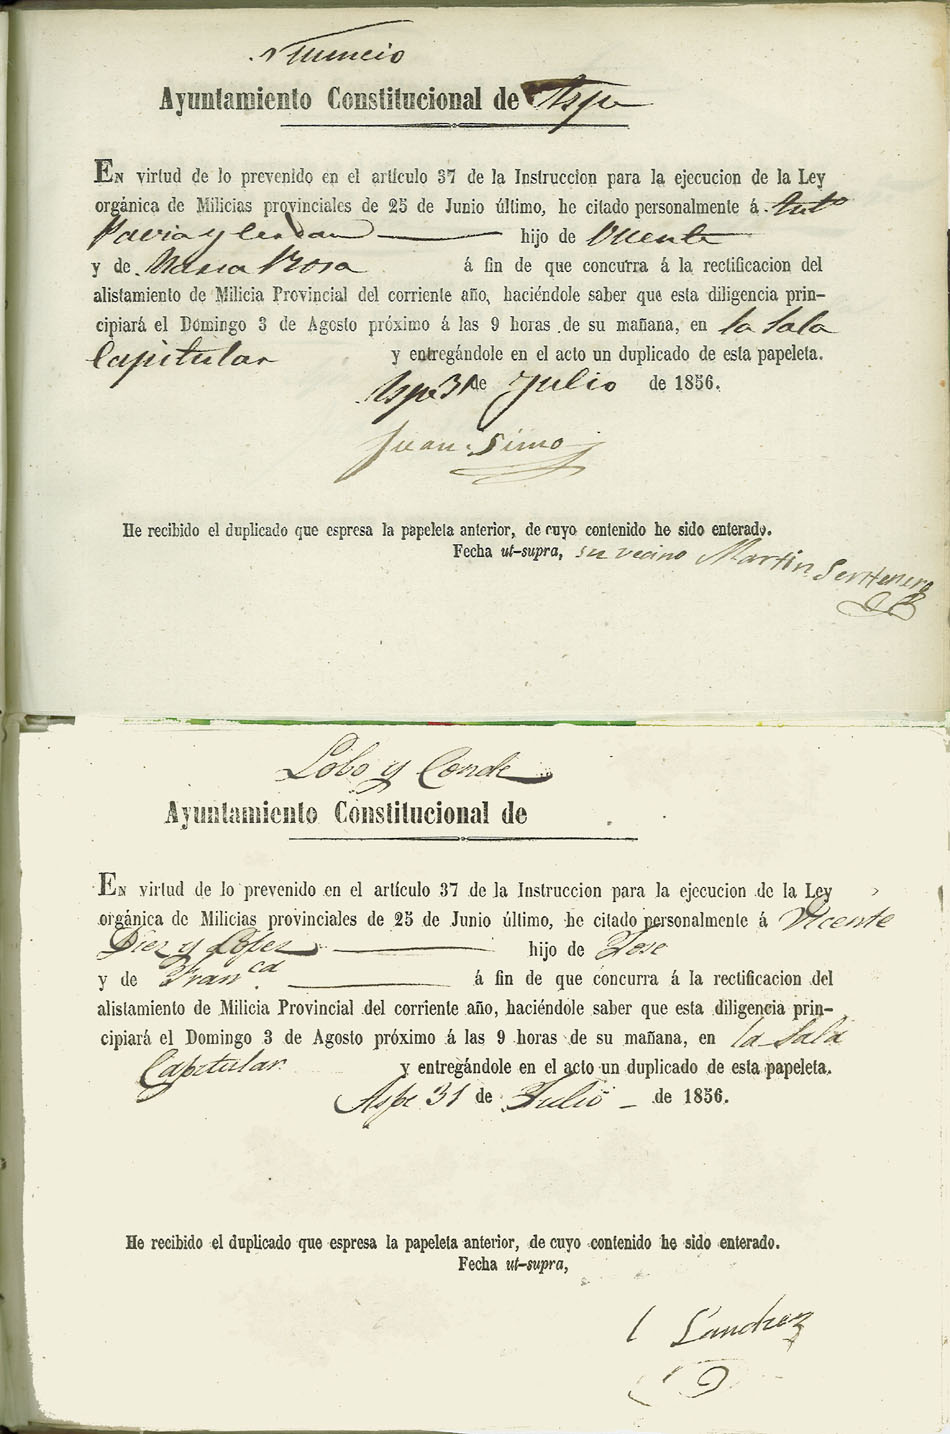 Nuncio
Ayuntamiento Constitucional de Aspe
EN virtud de lo prevenido en el artículo 37 de la Instruccion para la ejecucion de la Ley
orgánica de Milicias provinciales de 25 de Junio último, he citado personalmente á Anto
Pavia y Cerdan hijo de Vicente
y de Maria Rosa á fin de que concurra á la rectificacion del
alistamiento de Milicia Provincial del corriente año, haciéndole saber que esta diligencia prin-
cipiará el Domingo 3 de Agosto próximo á las 9 horas de su mañana, en la Sala
Capitular y entregándole en el acto un duplicado de esta papeleta.
Aspe 31 de Julio de 1856.
Juan Simo
He recibido el duplicado que espresa la papeleta anterior, de cuyo contenido he sido enterado.
Fecha ut-supra, su vecino Martin
Lobo y Conde
Ayuntamiento Constitucional de
EN virtud de lo prevenido en el artículo 37 de la Instruccion para la ejecucion de la Ley
orgánica de Milicias provinciales de 25 de Junio último, he citado personalmente á Vicente
Diez y Lopez hijo de Jose
y de Franca á fin de que concurra á la rectificacion del
alistamiento de Milicia Provincial del corriente año, haciéndole saber que esta diligencia prin-
cipiará el Domingo 3 de Agosto próximo á las 9 horas de su mañana, en la Sala
Capitular y entregándole en el acto un duplicado de esta papeleta.
Aspe 31 de Julio de 1856.
He recibido el duplicado que espresa la papeleta anterior, de cuyo contenido he sido enterado.
Fecha ut-supra,
Sanchez